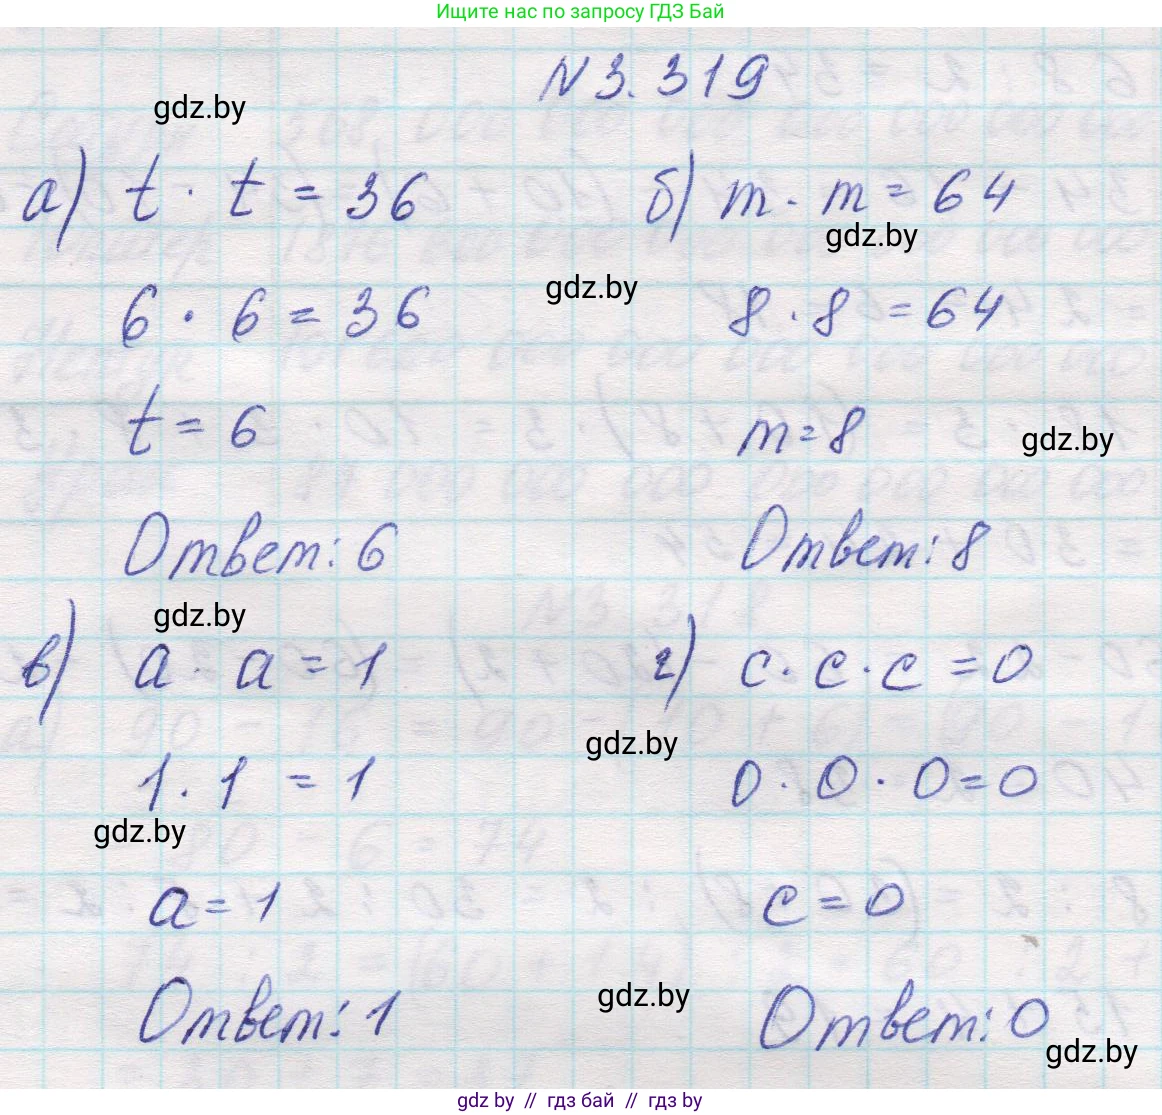 Ищите нас по запросу ГДЗ Бай
N 3.319
gdz.by
а) t · t = 36
б) m · m = 64
gdz.by
gdz.by
6 · 6 = 36
8 · 8 = 64
t = 6
m = 8
gdz.by
Ответ: 6
Ответ: 8
gdz.by
в) a · a = 1
г) c · c · c = 0
gdz.by
1 · 1 = 1
0 · 0 · 0 = 0
gdz.by
a = 1
c = 0
gdz.by
Ответ: 1
Ответ: 0
gdz.by
gdz by // гдз бай // гдз by